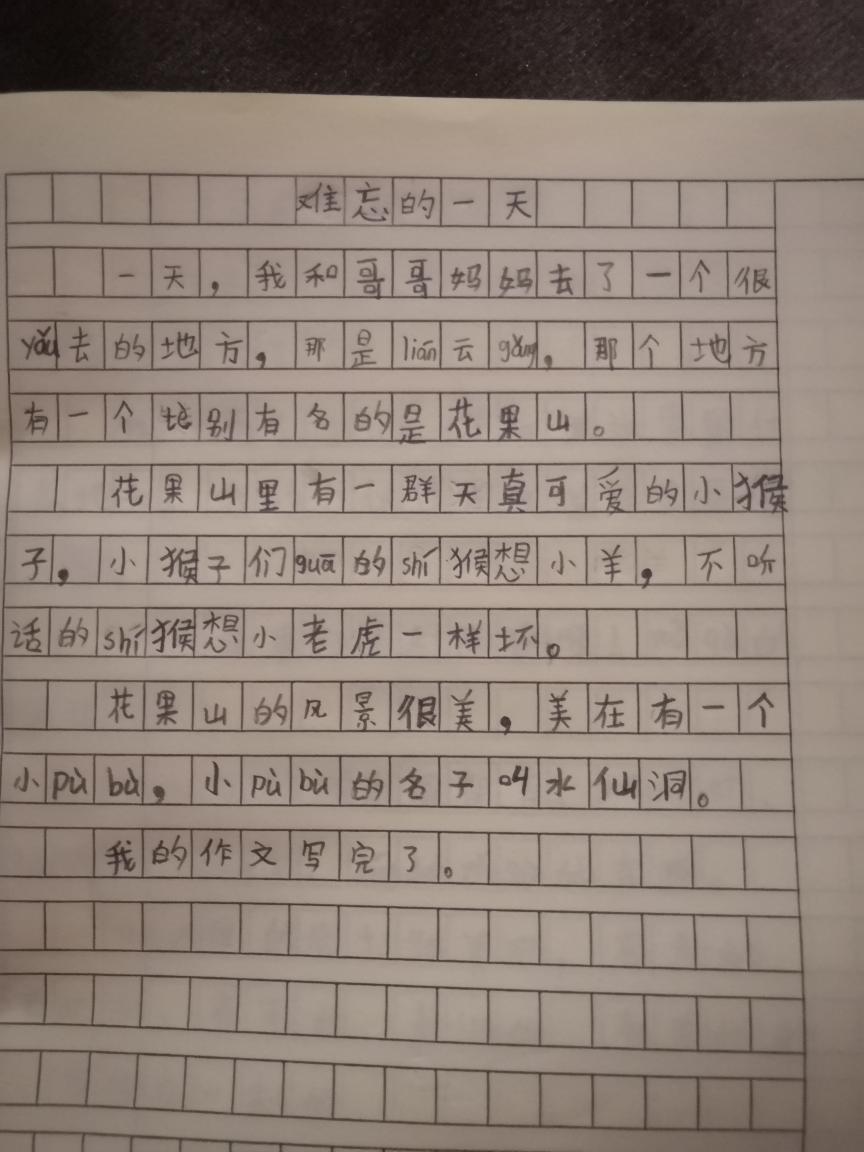 难忘的一天
一天，我和哥哥妈妈去了一个很
yǎu去的地方，那是lián云gǎng，那个地方
有一个地别有名的是花果山。
花果山里有一群天真可爱的小猴
子，小猴子们guāi的shí猴想小羊，不听
话的shí猴想小老虎一样坏。
花果山的风景很美，美在有一个
小pù bù，小pù bù的名子叫水仙洞。
我的作文写完了。